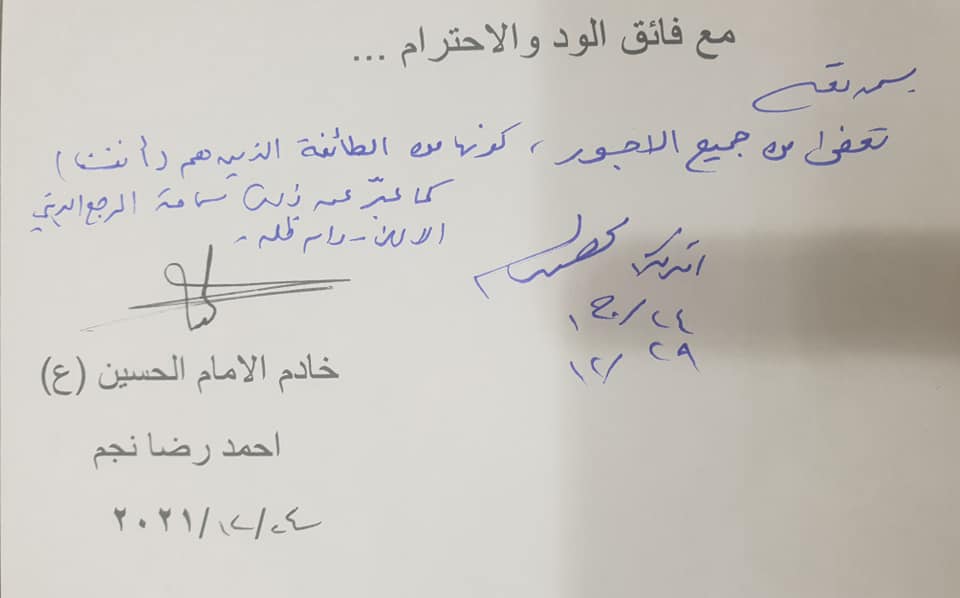 مع فائق الود والاحترام ...
بسمه تعالى
تعفى من جميع الاجور ، كونها من الطائفة الذين هم (أنفسنا)
كما عبّر عن ذلك سماحة المرجع الديني
الاعلى - دام ظله -
٢٤/ج١
٢٩/١٢
خادم الامام الحسين (ع)
احمد رضا نجم
٢٠٢١/١٢/٢٤